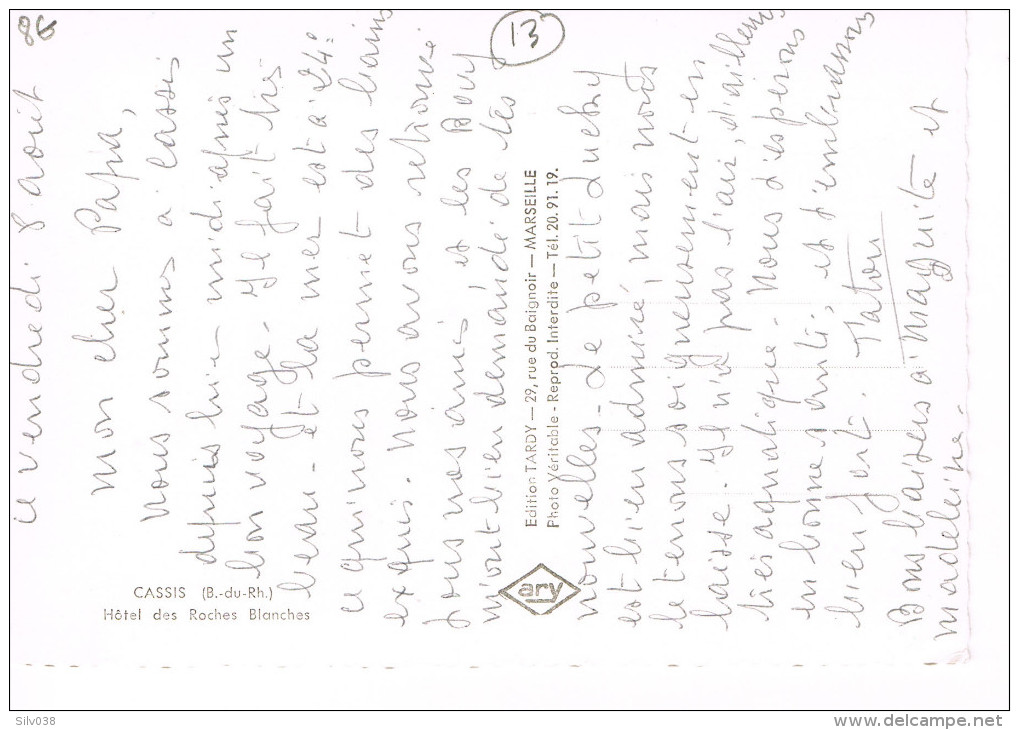 86
13
le vendredi 8 août
Mon cher Papa,
Nous sommes à Cassis
depuis hier midi après un
bon voyage. Il fait très
beau - et la mer est à 24°
ce qui nous permet des bains
exquis. Nous avons retrouvé
tous nos amis, et les
m'ont bien demandé de tes
nouvelles. Le petit
est bien admiré, mais nous
le tenons soigneusement en
laisse. Il n'a pas l'air, d'ailleurs
très aquatique. Nous t'espérons
en bonne santé, et t'embrassons
bien fort.
Bons baisers à Marguerite et
Madeleine.
CASSIS (B.-du-Rh.)
Hôtel des Roches Blanches
Edition TARDY — 29, rue du Baignoir — MARSEILLE
Photo Véritable - Reprod. Interdite — Tél. 20. 91. 19.
ary
Silv038
www.delcampe.net